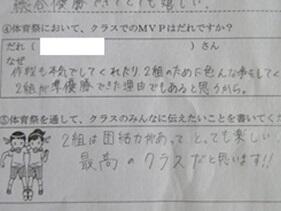 総合優勝できてとても嬉しい。
④体育祭において、クラスでのMVPはだれですか?
だれ( )さん
なぜ
作戦も本気でしてくれたり、2組のために色んな事をしてく
2組が準優勝できた理由でもあると思うから。
⑤体育祭を通して、クラスのみんなに伝えたいことを書いてく
2組は団結力があって とっても楽しい
最高のクラスだと思います!!